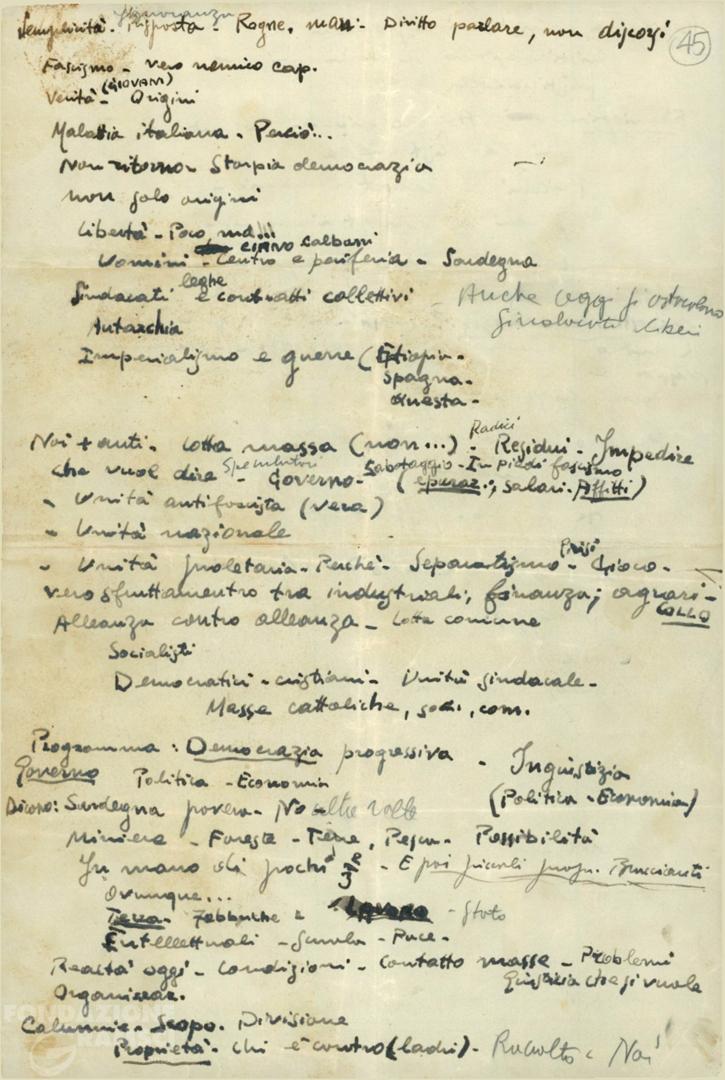 Semplicità - Risposta - Rogne, man: Diritto parlare, non discorsi
45
Fascismo - vero nemico cap.
(GIOVANI)
Verità - Origini
Malattia italiana - Perciò...
Non ritorno - Storpia democrazia
non solo origini
Libertà - Poco, ma!!!
CIANO
Uomini - Centro e periferia - Sardegna
leghe
Sindacati e contratti collettivi - Anche oggi si ostacolano
sindacati liberi
Autarchia
Imperialismo e guerre (Etiopia -
Spagna -
Questa -
Radici
Noi + anti - lotta massa (non...) - Residui - Impedire
che vuol dire - Governo - Sabotaggio - In piedi fascismo
(epuraz.; salari - Affitti)
- Unità antifascista (vera)
- Unità nazionale
- Unità proletaria - Perchè - Separatismo - Gioco -
vero sfruttamento tra industriali, finanza; agrari -
Alleanza contro alleanza - lotta comune
Socialisti
Democratici - cristiani - Unità sindacale -
Masse cattoliche, soci, com.
Programma: Democrazia progressiva - Ingiustizia
Governo Politica - Economia (Politica - Economia)
Dicono: Sardegna povera - No altre volte
Miniere - Foreste - Terre, Pesca - Possibilità
In mano di pochi - E poi piccoli prop. Braccianti
Ovunque...
Terra - Fabbriche - Lavoro - Stato
Intellettuali - Scuola - Pace -
Realtà oggi - Condizioni - Contatto masse - Problemi
Giustizia che si vuole
Organizzaz.
Calunnie - Scopo. Divisione
Proprietà - Chi è contro (ladri) - Noi